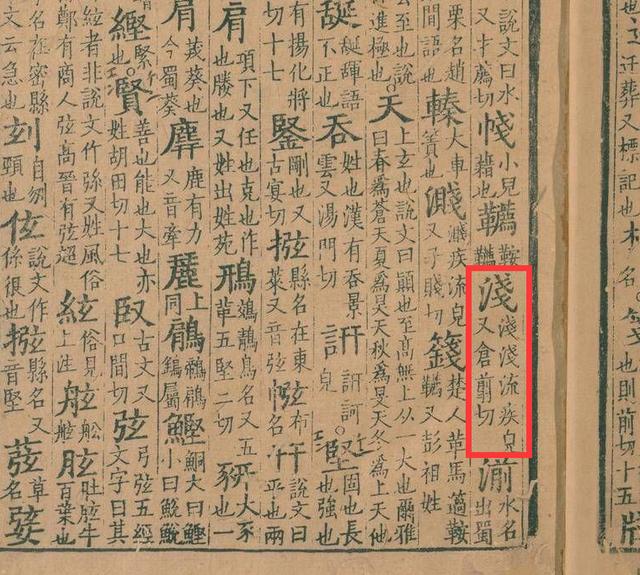 說文曰水
又才薦切
帴小兒
藉也
韉鞍
韉
淺淺淺流疾皃
又倉翦切
湔水名
出蜀
栗名趙
間語也
轃大車
簀也
濺濺疾流皃
又子賤切
韉又彭祖姓
云至也說
進極也
天上玄也說文曰顚也至高無上从一大也爾雅
曰春爲蒼天夏爲昊天秋爲旻天冬爲上天他
語
不正也
吞姓也漢有吞景
雲又湯門切
訮訮訶
皃
堅固也長
也強也
有揚化將
切十七
鋻剛也又
古宴切
縣名在東
萊又音弦
布
名
幵說文曰
平也兩
肩項下又任也克也作
也勝也又姓出姓苑
鳽鵁鶄鳥名又五
革五堅二切
豜大豕
也一
茙葵也
今蜀葵
麉鹿有力
又音牽
上
同
鵳鶙鵳
鷂屬
鰹鮦大曰鰹
小曰鮵
緊
也
賢善也能也大也亦
姓胡田切十七
臤古文又
口間切
弦弓弦五經
文字曰其
絃者非說文作弦又姓風俗
鄭有商人弦高晉有弦超
絃俗見
上注
舷舩
舷
胘肚胘牛
百葉也
名在密縣
文云急也
自刎
頸也
伭說文作
係很也
縣名又
音堅
草
名